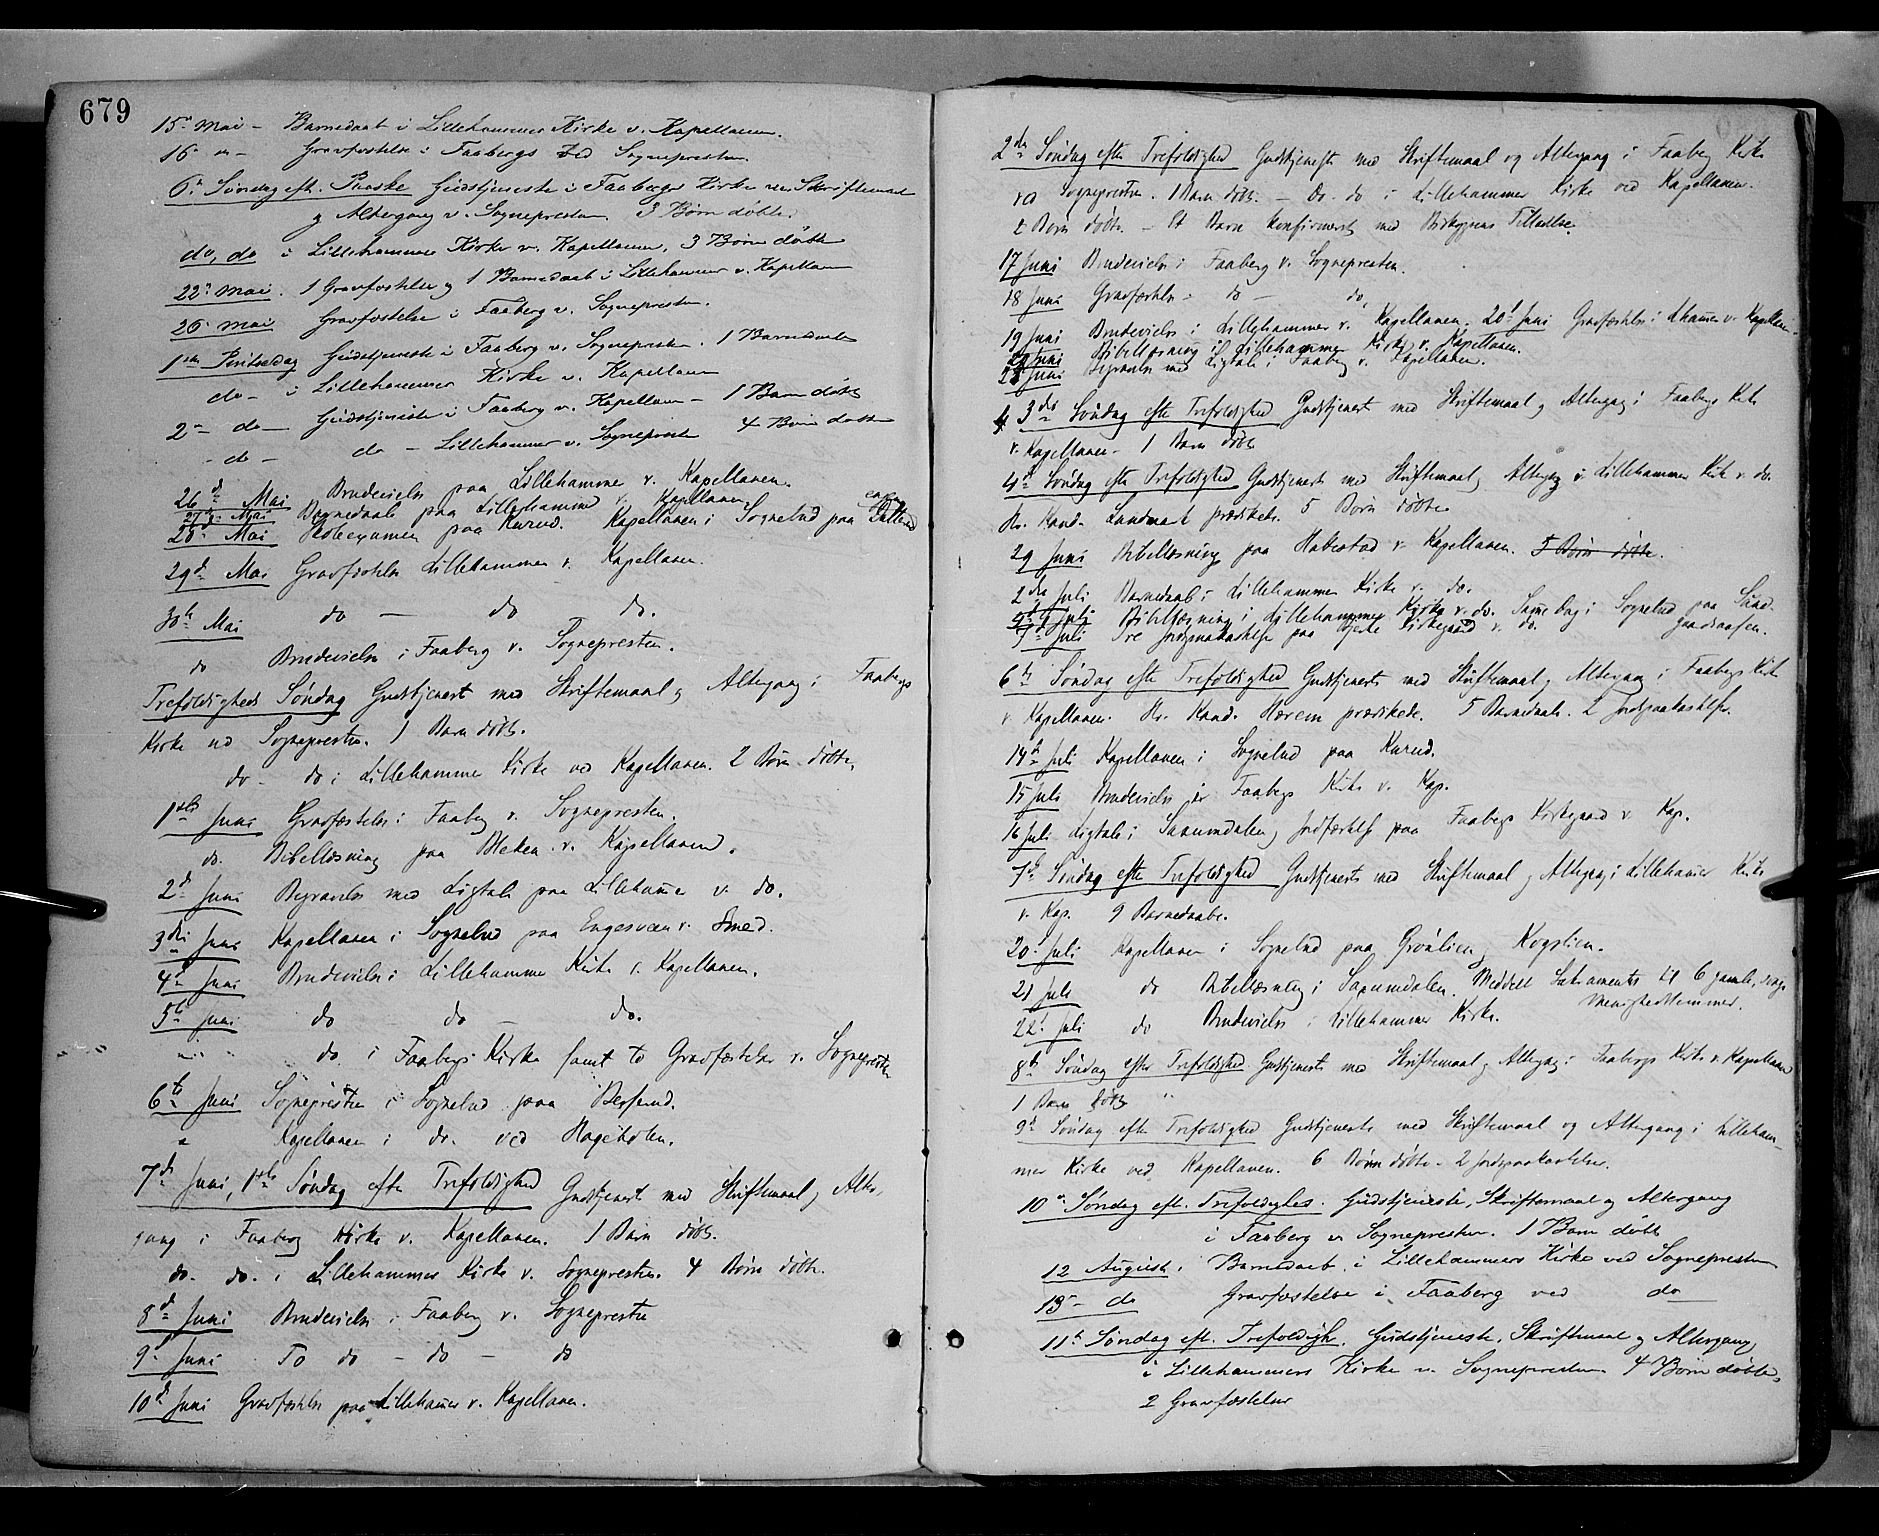 679
15de Mai - Barnedaab i Lillehammer Kirke v. Kapellanen.
16 " - Gravfæstelse i Faabergs ved Sognepresten.
6te Søndag eft. Paaske Gudstjeneste i Faabergs Kirke m. Skriftemaal
og Altergang v. Sognepresten. 3 Børn døbte.
do, do i Lillehammer Kirke v. Kapellanen, 3 Børn døbte
22de Mai. 1 Gravfæstelse og 1 Barnedaab i Lillehammer v. Kapellanen
26 Mai Gravfæstelse i Faaberg v. Sognepresten.
1ste Pintsedag Gudstjeneste i Faaberg v. Sognepresten. 1 Barnedaab
do - i Lillehammer Kirke v. Kapellanen
2 - do - Gudstjeneste i Faaberg v. Kapellanen - 1 Barn døbt
- do - do - Lillehammer v. Sognepresten 4 Børn døbte
26de Mai Brudevielse paa Lillehammer v. Kapellanen.
27de Mai Barnedaab paa Lillehammer v. Kapellanen.
28de Mai Skoleexamen paa Kurud. Kapellanen i Sognebud paa
29de Mai Gravfæstelse Lillehammer v. Kapellanen.
30te Mai do - do do.
do Brudevielse i Faaberg v. Sognepresten.
Trefoldigheds Søndag Gudstjenest med Skriftemaal og Altergang i Faabergs
Kirke ved Sognepresten. 1 Barn døbt.
do - do i Lillehammer Kirke ved Kapellanen. 2 Børn døbte.
1ste Juni Gravfæstelse i Faaberg v. Sognepresten.
do. Bibellæsning paa Bleken v. Kapellanen.
2de Juni Begravelse med Ligtale paa Lillehamer v. do.
3die Juni Kapellanen i Sognebud paa Engesveen v. Smed.
4de Juni Brudevielse i Lillehammer Kirke v. Kapellanen.
5te Juni do - do - do.
do i Faabergs Kirke samt to Gravfæstelser v. Sognepresten
6te Juni Sognepresten i Sognebud paa
" Kapellanen i do. ved
7de Juni, 1ste Søndag efter Trefoldighed Gudstjenest med Skriftemaal og Alter-
gang i Faaberg Kirke v. Kapellanen. 1 Barn døbt.
do. do. i Lillehammer Kirke v. Sognepresten. 4 Børn døbte.
8de Juni Brudevielse i Faaberg v. Sognepresten
9de Juni To do - do - do
10de Juni Gravfæstelse paa Lillehamer v. Kapellanen.
2den Søndag efter Trefoldighed Gudstjeneste med Skriftemaal og Altergang i Faaberg Kirke
ved Sognepresten. 1 Barn døbt. - Do. do i Lillehammer Kirke ved Kapellanen.
2 Børn døbte. - Et Barn konfirmeret med Biskoppens Tilladelse.
17 Juni Brudevielse i Faaberg v. Sognepresten.
18 Juni Gravfæstelse - do - do.
19 Juni Brudevielse i Lillehammer v. Kapellanen. 20de Juni Gravfæstelse i Lhamer v. Kapellan.
Juni Bibellæsning i Lillehammer Kirke v. Kapellanen.
Juni Begravelse med Ligtale i Faaberg v. Kapellanen.
3die Søndag efter Trefoldighed Gudstjenest med Skriftemaal og Altergang i Faabergs Kirke
v. Kapellanen - 1 Barn døbt
4de Søndag efter Trefoldighed Gudstjenest med Skriftemaal og Altergang i Lillehammer Kirke v. do.
Hr. Kand. Landmark prædiket. 5 Børn døbte
29 Juni Bibellæsning paa Haberstad v. Kapellanen. 5 Børn døbte.
2den Juli Barnedaab i Lillehammer Kirke v. do.
Juli Bibellæsning i Lillehammer Kirke v. do. Same Dag i Sognebud paa
Juli Tre Jordspaakastelse paa Kirkegaard v. do.
6te Søndag efter Trefoldighed Gudstjeneste med Skriftemaal og Altergang i Faabergs Kirke
v. Kapellanen. Hr. Kand. Harem prædikede. 5 Barnedaab. 2 Jordspaakastelser.
14de Juli Kapellanen i Sognebud paa Kurud.
15 Juli Brudevielse i Faabergs Kirke v. Kap.
16 Juli Ligtale i Saxumdalen og Jordfæstelse paa Faabergs Kirkegaard v. Kap.
7de Søndag efter Trefoldighed Gudstjeneste med Skriftemaal og Altergang i Lillehamer Kirke
v. Kap. 9 Barnedaabe.
20de Juli Kapellanen i Sognebud paa Grønlien og Kogstien.
21 Juli do Bibellæsning i Saxumdalen. Meddelt Sakramentet til 6 gamle, svage
Menighedslemmer.
22de Juli do Brudevielse i Lillehammer Kirke.
8de Søndag efter Trefoldighed Gudstjeneste med Skriftemaal og Altergang i Faabergs Kirke v. Kapellanen
1 Barn døbt
9de Søndag efter Trefoldighed Gudstjeneste med Skriftemaal og Altergang i Lilleham-
mer Kirke ved Kapellanen. 6 Børn døbte - 2 Jordspaakastelser.
10de Søndag eft. Trefoldighed. Gudstjeneste, Skriftemaal og Altergang
i Faaberg v. Sognepresten. 1 Barn døbt
12 August. Barnedaab i Lillehammers Kirke ved Sognepresten
13 - do Gravfæstelse i Faaberg ved do
11te Søndag eft. Trefoldigh. Gudstjeneste, Skriftemaal og Altergang
i Lillehammers Kirke v. Sognepresten 4 Børn døbte,
2 Gravfæstelser